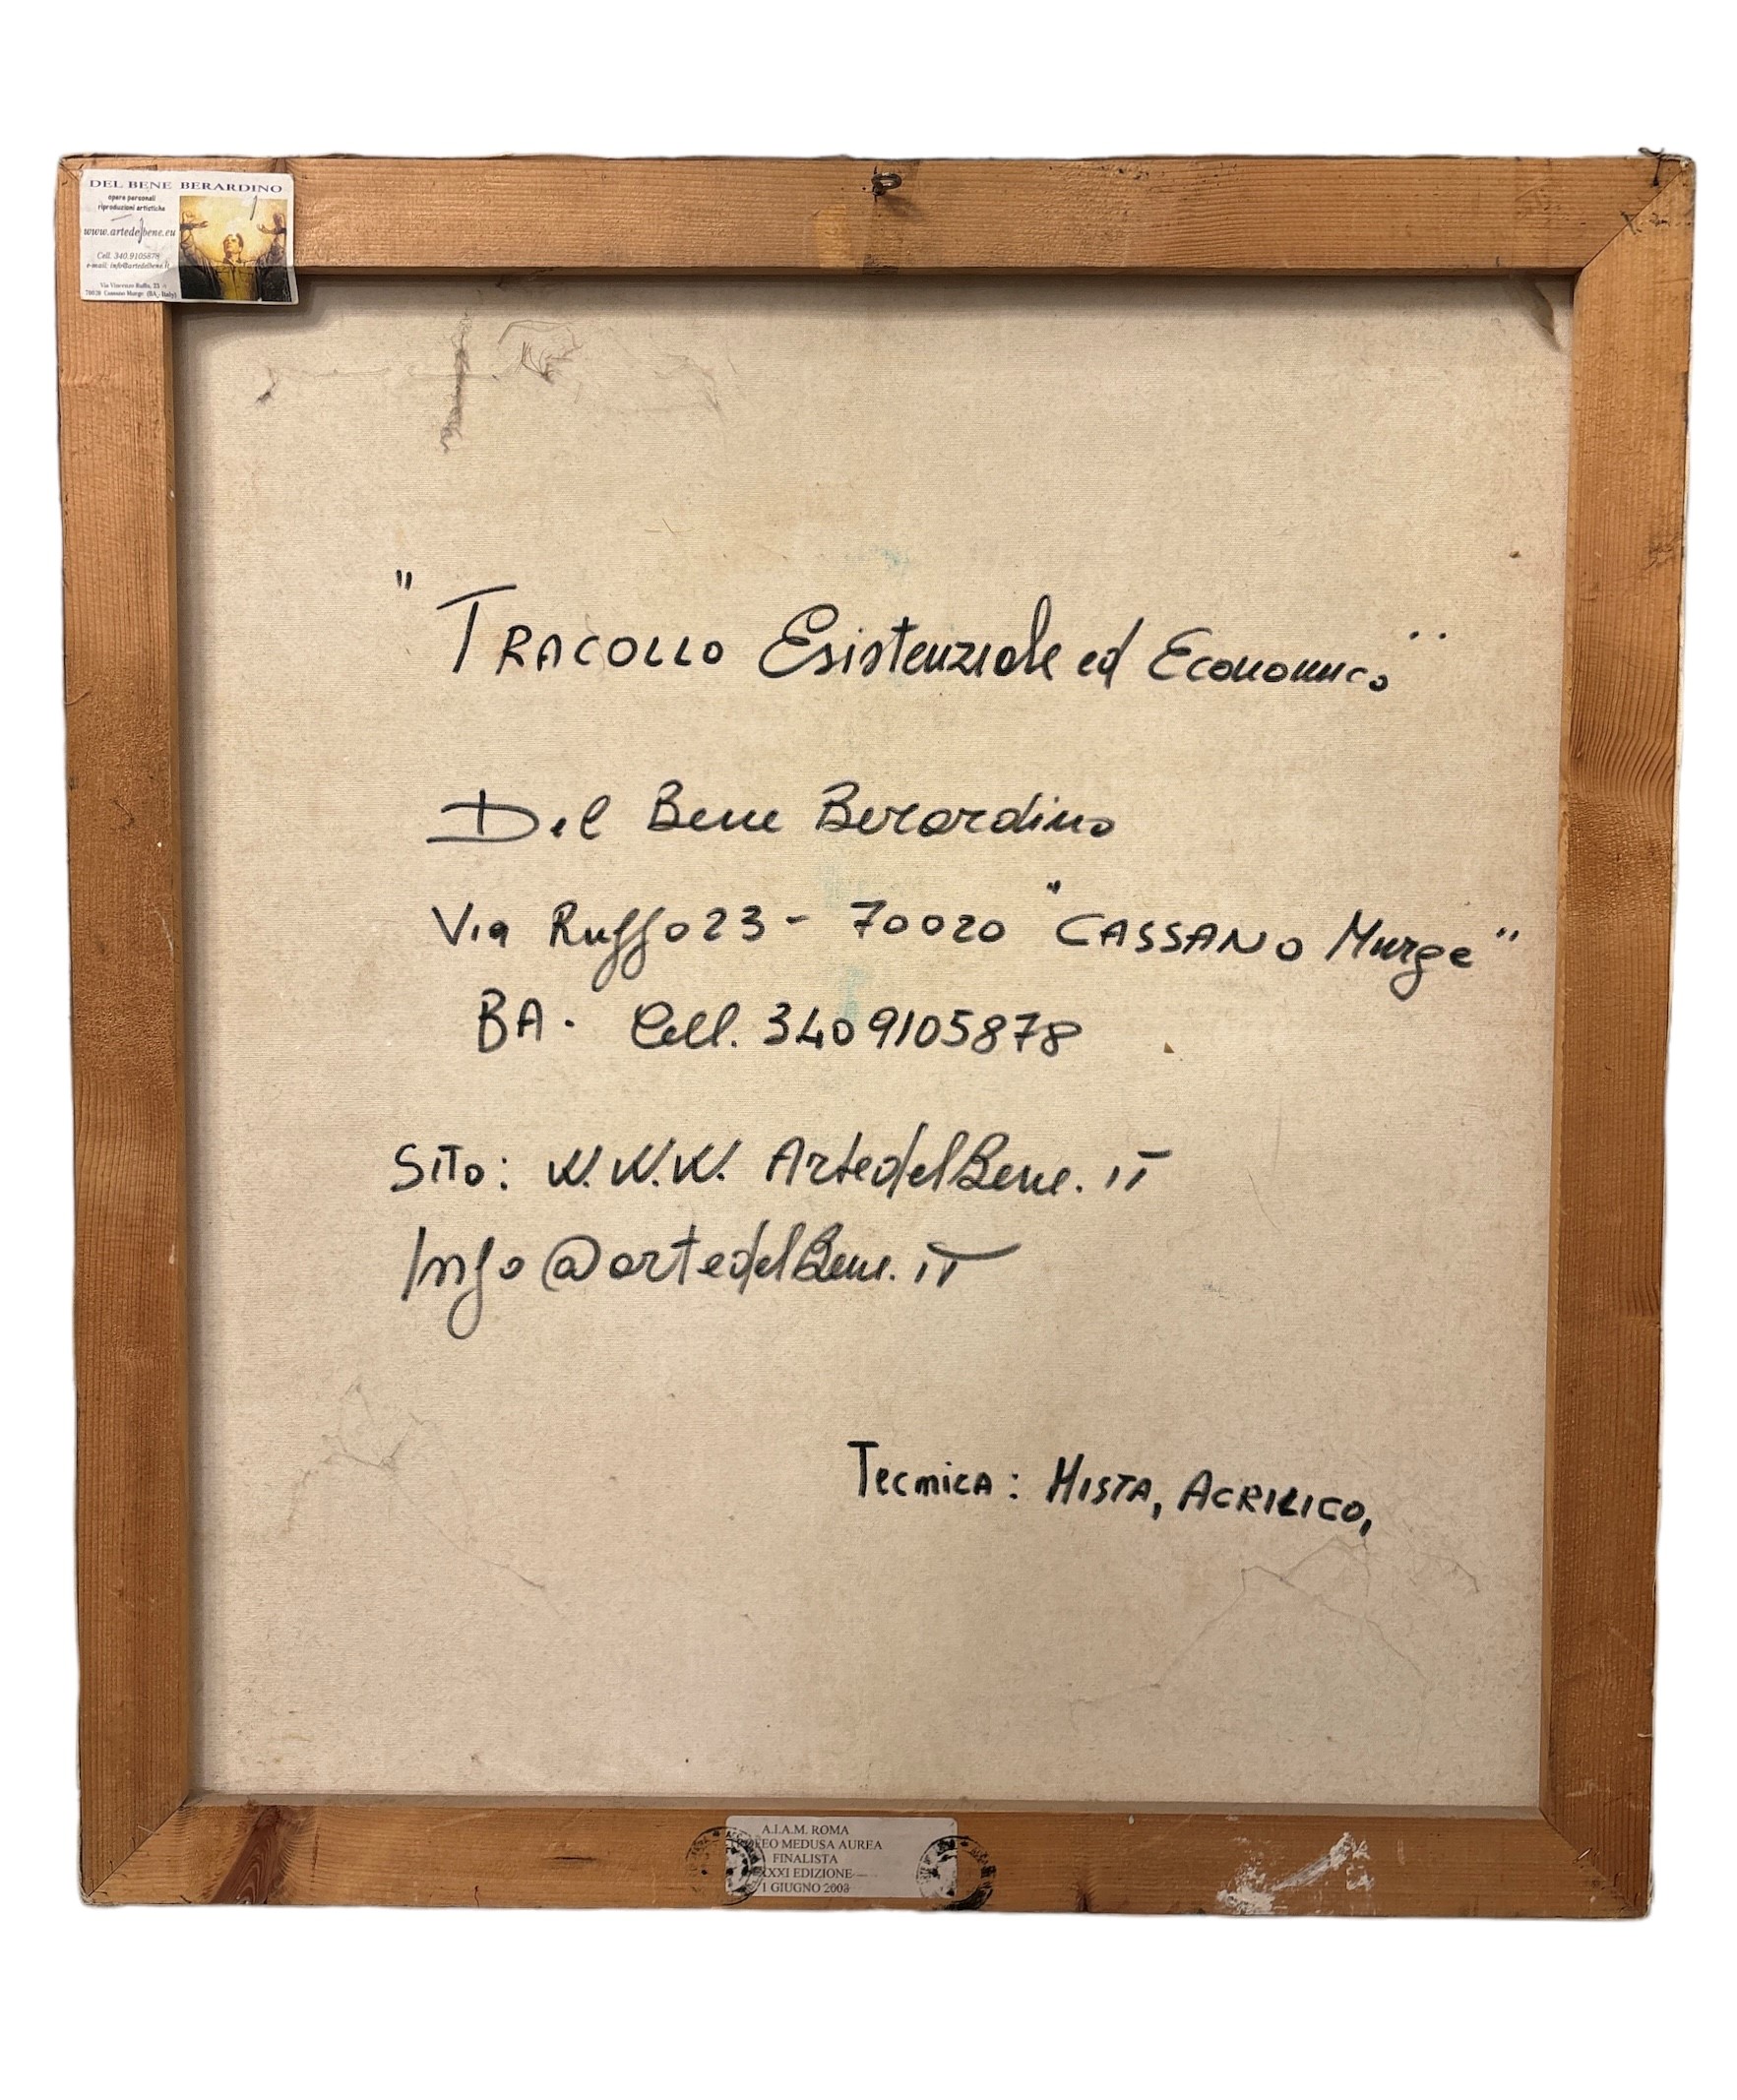 DEL BENE BERARDINO
opere personali
riproduzioni artistiche
www.artedelbene.eu
Cell. 340.9105878
e-mail: info@artedelbene.it
Via Vincenzo Ruffo, 23
70020 Cassano Murge (BA - Italy)
" TRACOLLO Esistenziale ed Economico "
Del Bene Berardino
Via Ruffo 23 - 70020 "CASSANO Murge"
BA. Cell. 3409105878
SiTo: W.W.W. ArtedelBene.iT
Info@artedelBene.iT
Tecnica: MISTA, ACRILICO,
A.I.A.M. ROMA
MEDUSA AUREA
FINALISTA
XXXI EDIZIONE
1 GIUGNO 2008